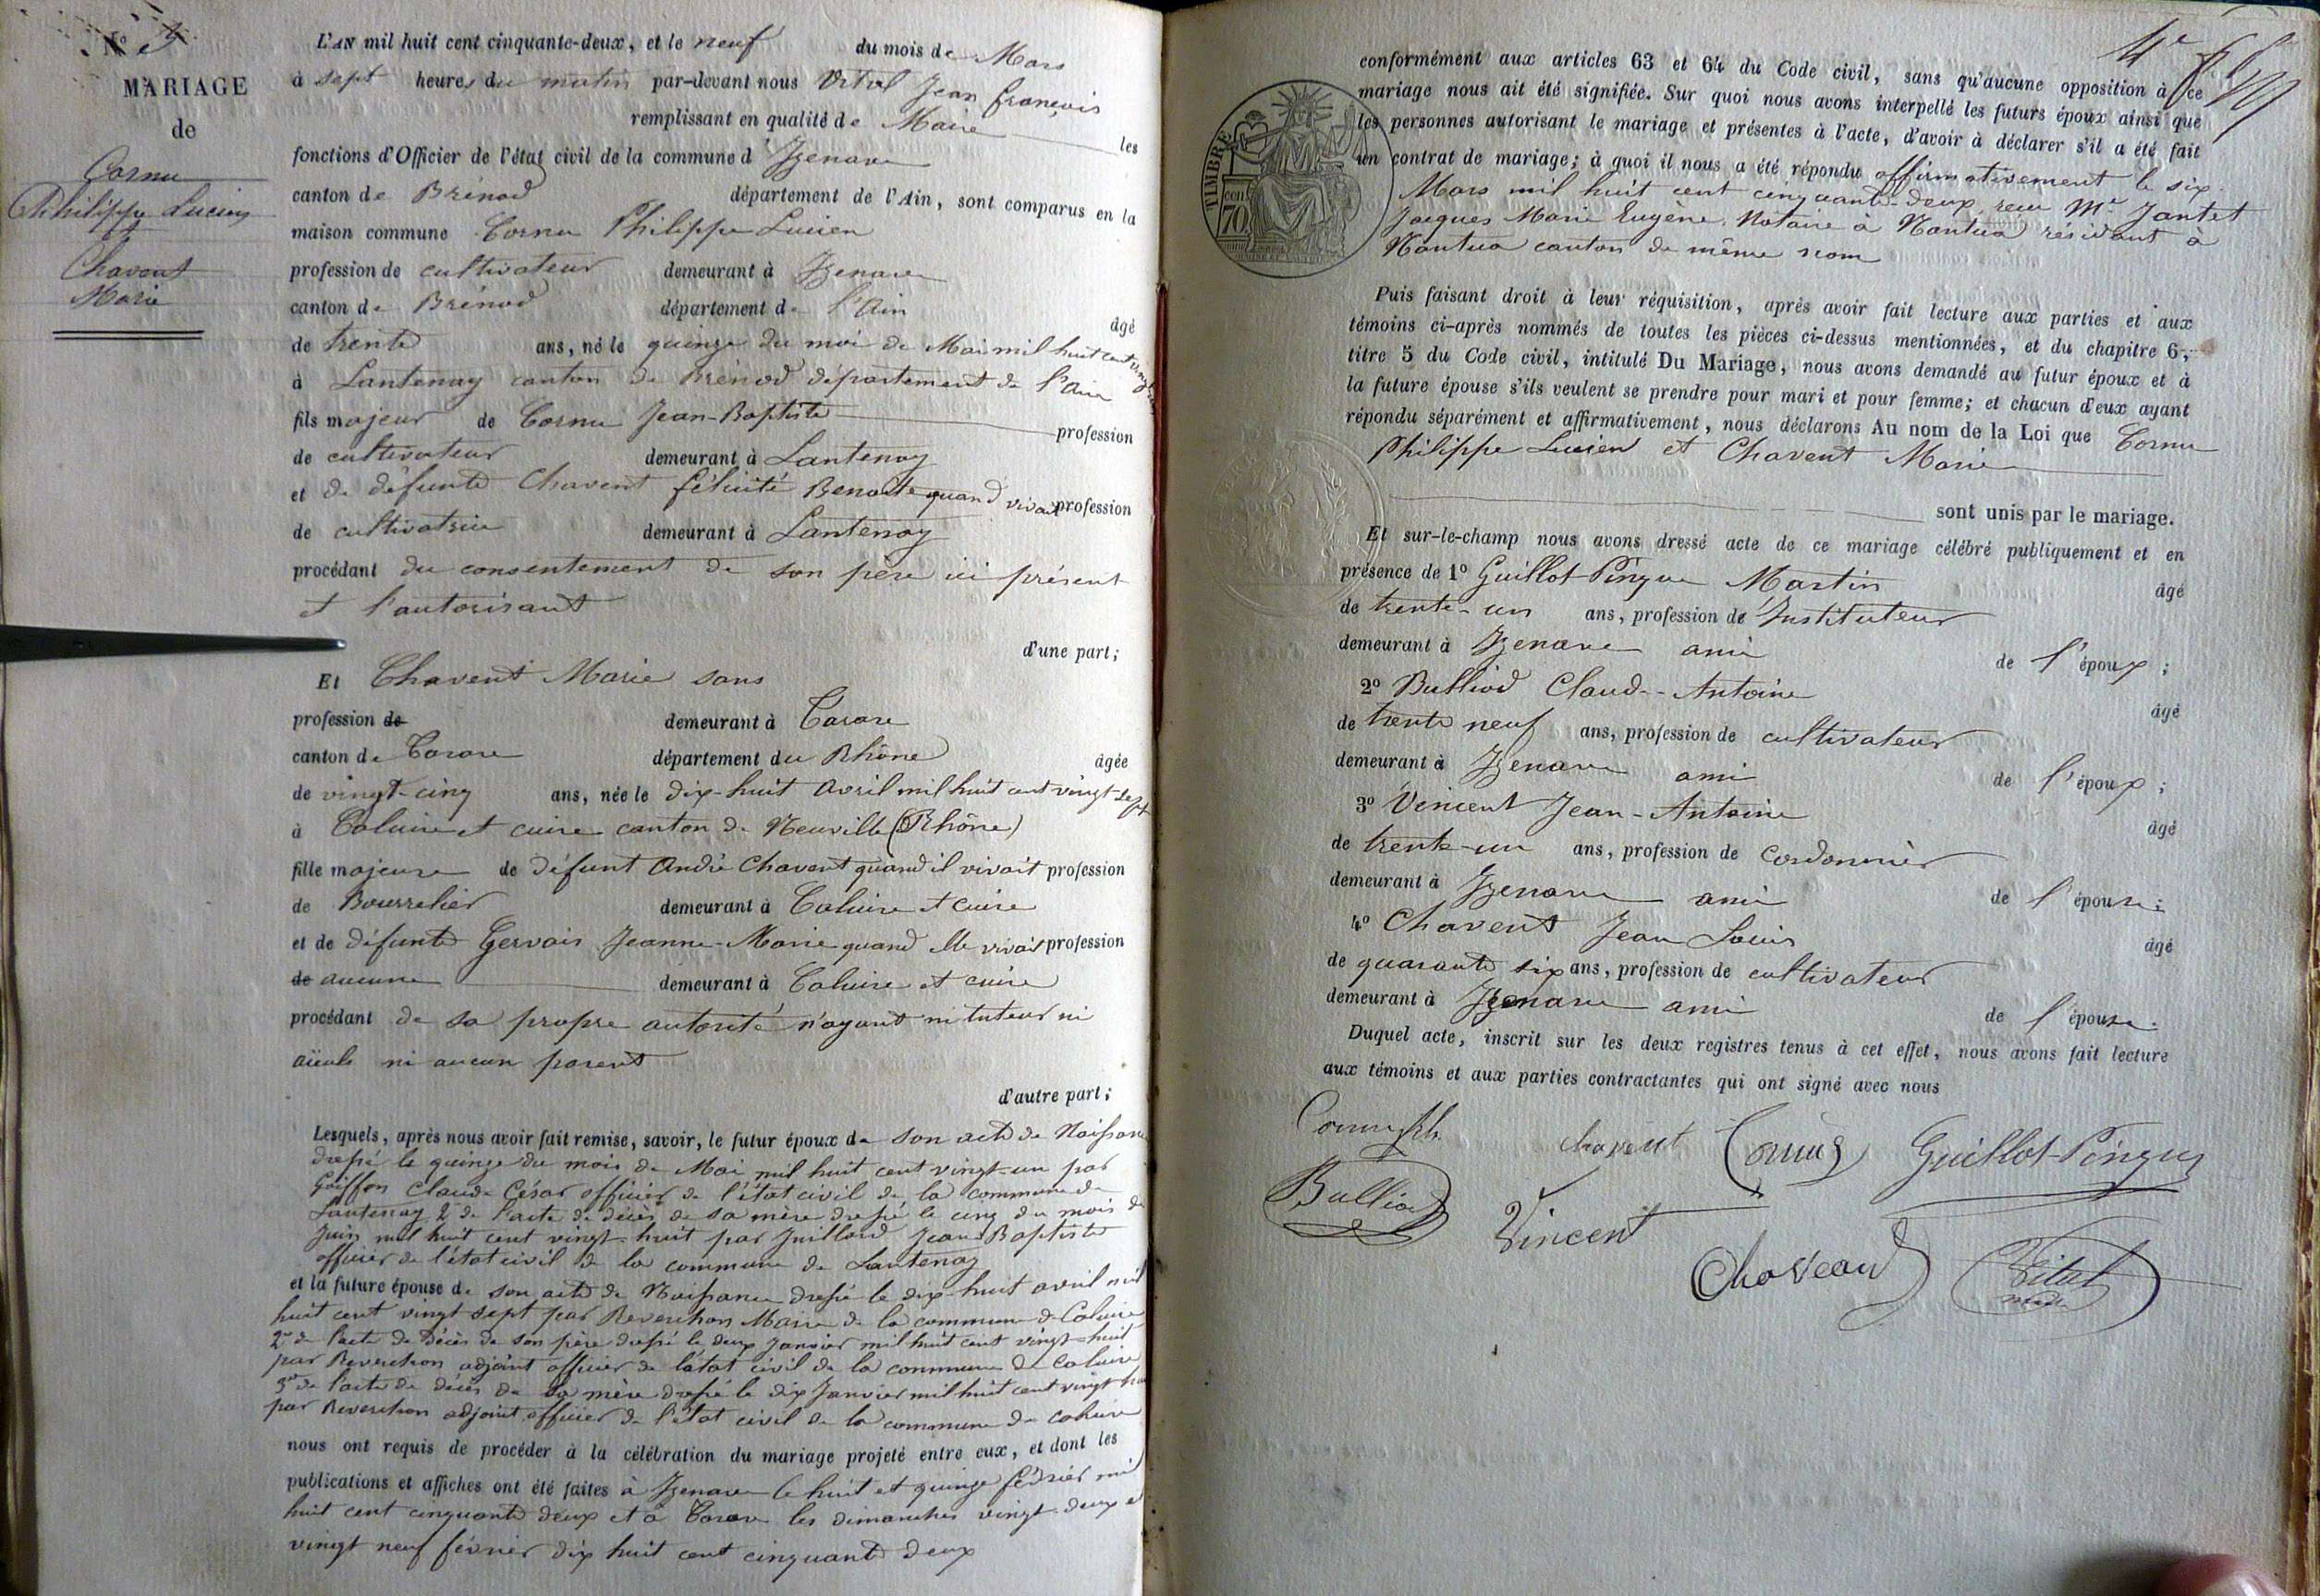 N.º 3
MARIAGE
de
Cornu
Philippe Lucien
et
Chavent
Marie
L'AN mil huit cent cinquante-deux, et le neuf du mois de Mars
à sept heures du matin par-devant nous Vital Jean françois
remplissant en qualité de Maire les
fonctions d'Officier de l'état civil de la commune d'Izenave
canton de Brénod département de l'Ain, sont comparus en la
maison commune Cornu Philippe Lucien
profession de cultivateur demeurant à Izenave
canton de Brénod département de l'Ain
âgé
de trente ans, né le quinze du moi de Mai mil huit cent vingt un
à Lantenay canton de Brénod département de l'Ain
fils majeur de Cornu Jean-Baptiste profession
de cultivateur demeurant à Lantenay
et de défunte Chavent félicité Benoite quand vivait profession
de cultivatrice demeurant à Lantenay
procédant du consentement de son père ici présent
et l'autorisant
d'une part;
Et Chavent Marie sans
profession de demeurant à Tarare
canton de Tarare département du Rhône âgée
de vingt-cinq ans, née le dix-huit avril mil huit cent vingt-sept
à Caluire et cuire canton de Neuville (Rhône)
fille majeure de défunt André Chavent quand il vivait profession
de Bourrelier demeurant à Caluire et cuire
et de défunte Gervais Jeanne-Marie quand elle vivait profession
de aucune demeurant à Caluire et cuire
procédant de sa propre autorité n'ayant ni tuteur ni
aïeuls ni aucun parent
d'autre part;
Lesquels, après nous avoir fait remise, savoir, le futur époux de son acte de Naissance
dressé le quinze du mois de Mai mil huit cent vingt-un par
Goiffon Claude César officier de l'état civil de la commune de
Lantenay 2º de l'acte de décès de sa mère dressé le cinq du mois de
Juin mil huit cent vingt-huit par Juillard Jean-Baptiste
officier de l'état civil de la commune de Lantenay
et la future épouse de son acte de Naissance dressé le dix-huit avril mil
huit cent vingt sept par Reverchon Maire de la commune de Caluire
2º de l'acte de Décès de son père dressé le deux Janvier mil huit cent vingt-huit
par Reverchon adjoint officier de l'état civil de la commune de Caluire
3º de l'acte de décès de sa mère dressé le dix Janvier mil huit cent vingt-huit
par Reverchon adjoint officier de l'état civil de la commune de Caluire
nous ont requis de procéder à la célébration du mariage projeté entre eux, et dont les
publications et affiches ont été faites à Izenave le huit et quinze février mil
huit cent cinquante deux et à Tarare les dimanches vingt-deux et
vingt neuf février dix huit cent cinquante deux
4e
conformément aux articles 63 et 64 du Code civil, sans qu'aucune opposition à ce
mariage nous ait été signifiée. Sur quoi nous avons interpellé les futurs époux ainsi que
les personnes autorisant le mariage et présentes à l'acte, d'avoir à déclarer s'il a été fait
un contrat de mariage; à quoi il nous a été répondu affirmativement le six
Mars mil huit cent cinquante-deux, reçu Me Jantet
Jacques Marie Eugène, Notaire à Nantua résidant à
Nantua canton de même nom
TIMBRE
70
Puis faisant droit à leur réquisition, après avoir fait lecture aux parties et aux
témoins ci-après nommés de toutes les pièces ci-dessus mentionnées, et du chapitre 6,
titre 5 du Code civil, intitulé Du Mariage, nous avons demandé au futur époux et à
la future épouse s'ils veulent se prendre pour mari et pour femme; et chacun d'eux ayant
répondu séparément et affirmativement, nous déclarons Au nom de la Loi que Cornu
Philippe Lucien et Chavent Marie
sont unis par le mariage.
Et sur-le-champ nous avons dressé acte de ce mariage célébré publiquement et en
présence de 1º Guillot-Pingue Martin âgé
de trente-un ans, profession de Instituteur
demeurant à Izenave ami de l'époux;
2º Bulliod Claude-Antoine âgé
de trente neuf ans, profession de cultivateur
demeurant à Izenave ami de l'époux;
3º Vincent Jean-Antoine âgé
de trente-un ans, profession de Cordonnier
demeurant à Izenave ami de l'épouse;
4º Chavent Jean Louis âgé
de quarante six ans, profession de cultivateur
demeurant à Izenave ami de l'épouse.
Duquel acte, inscrit sur les deux registres tenus à cet effet, nous avons fait lecture
aux témoins et aux parties contractantes qui ont signé avec nous
Cornu Ph. chavent Cornu Guillot-Pingue
Bulliod Vincent
Chaveau Vital
maire